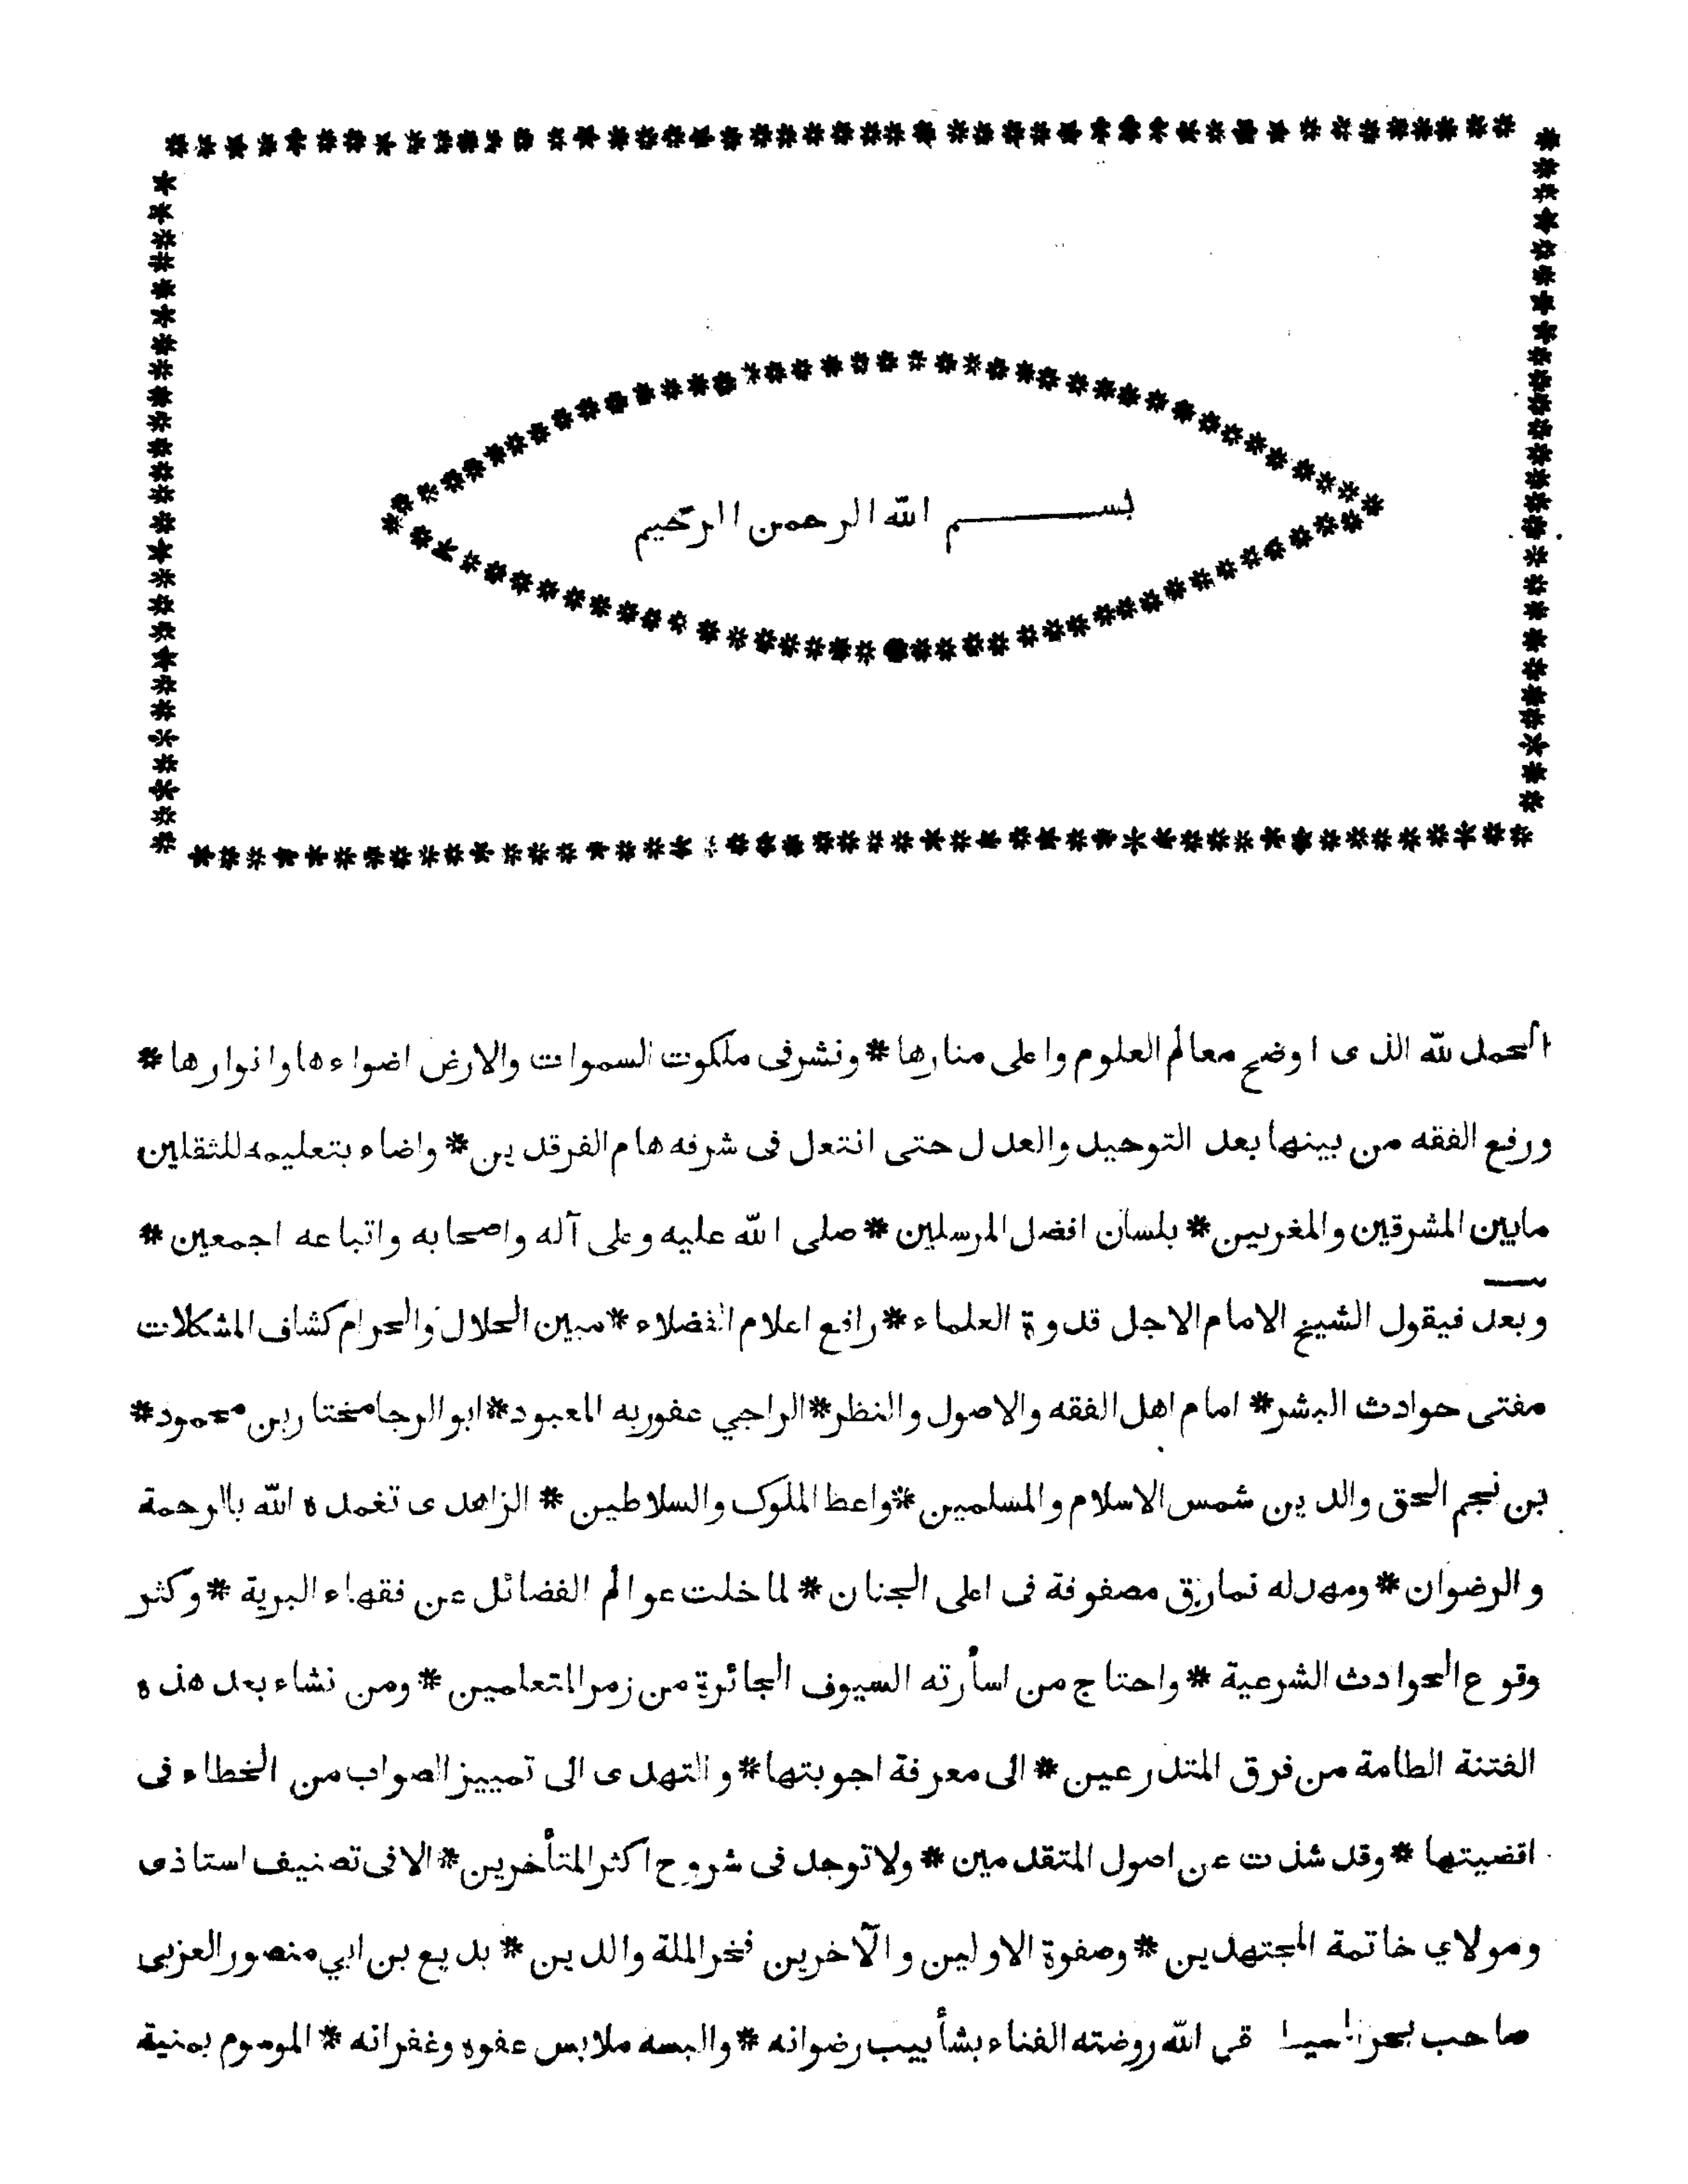 بســــــم الله الرحمن الرحيم
الحمد لله الذى اوضح معالم العلوم واعلى منارها * ونشر فى ملكوت السموات والارض اضواءها وانوارها *
ورفع الفقه من بينها بعد التوحيد والعدل حتى انتعل فى شرفه هام الفرقدين * واضاء بتعليمه للثقلين
مابين المشرقين والمغربين * بلسان افضل المرسلين * صلى الله عليه وعلى آله واصحابه واتباعه اجمعين *
وبعد فيقول الشيخ الامام الاجل قدوة العلماء * رافع اعلام الفضلاء * مبين الحلال والحرام كشاف المشكلات
مفتى حوادث البشر * امام اهل الفقه والاصول والنظر * الراجي عفو ربه المعبود * ابو الرجا مختار بن محمود *
بن نجم الحق والدين شمس الاسلام والمسلمين * واعظ الملوك والسلاطين * الزاهدى تغمده الله بالرحمة
والرضوان * ومهد له نمارق مصفوفة فى اعلى الجنان * لما خلت عوالم الفضائل عن فقهاء البرية * وكثر
وقوع الحوادث الشرعية * واحتاج من اسأرته السيوف الجائرة من زمر المتعلمين * ومن نشاء بعد هذه
الفتنة الطامة من فرق المتدرعين * الى معرفة اجوبتها * والتهدى الى تمييز الصواب من الخطاء فى
اقضيتها * وقد شذت عن اصول المتقدمين * ولا توجد فى شروح اكثر المتأخرين * الا فى تصنيف استاذى
ومولاي خاتمة المجتهدين * وصفوة الاولين والآخرين فخر الملة والدين * بديع بن ابي منصور العزبى
صاحب بحر الله روضته الفناء بشأبيب رضوانه * والبسه ملابس عفوه وغفرانه * الموسوم بمنية